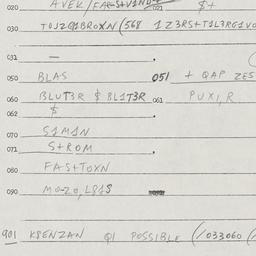 020 AVEK/FAES+VIND 021 $+
030 TOJZ91BROXN (568 1Z3RS+T1L3RG1VO
031 —
050 BLAS 051 + QAP ZES
060 BLUT3R $ BL1T3R 061 PUX1,R
062 $
070 S1M1N
071 S+ROM
080 FAS+TOXN
090 MO-20, L81S
901 K8ENZAN Q1 POSSIBLE (1033060